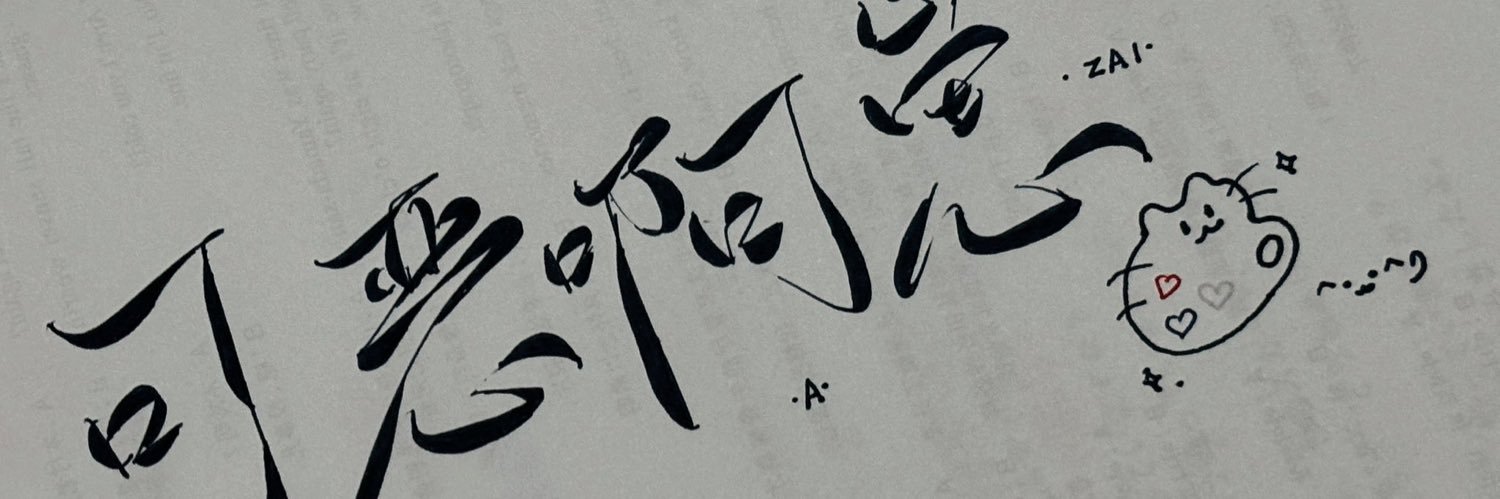 可恶啊崽
·ZAI·
·A·